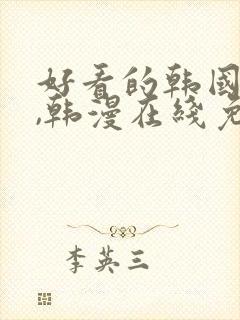 好看的韩国
,韩漫在线免
李英三